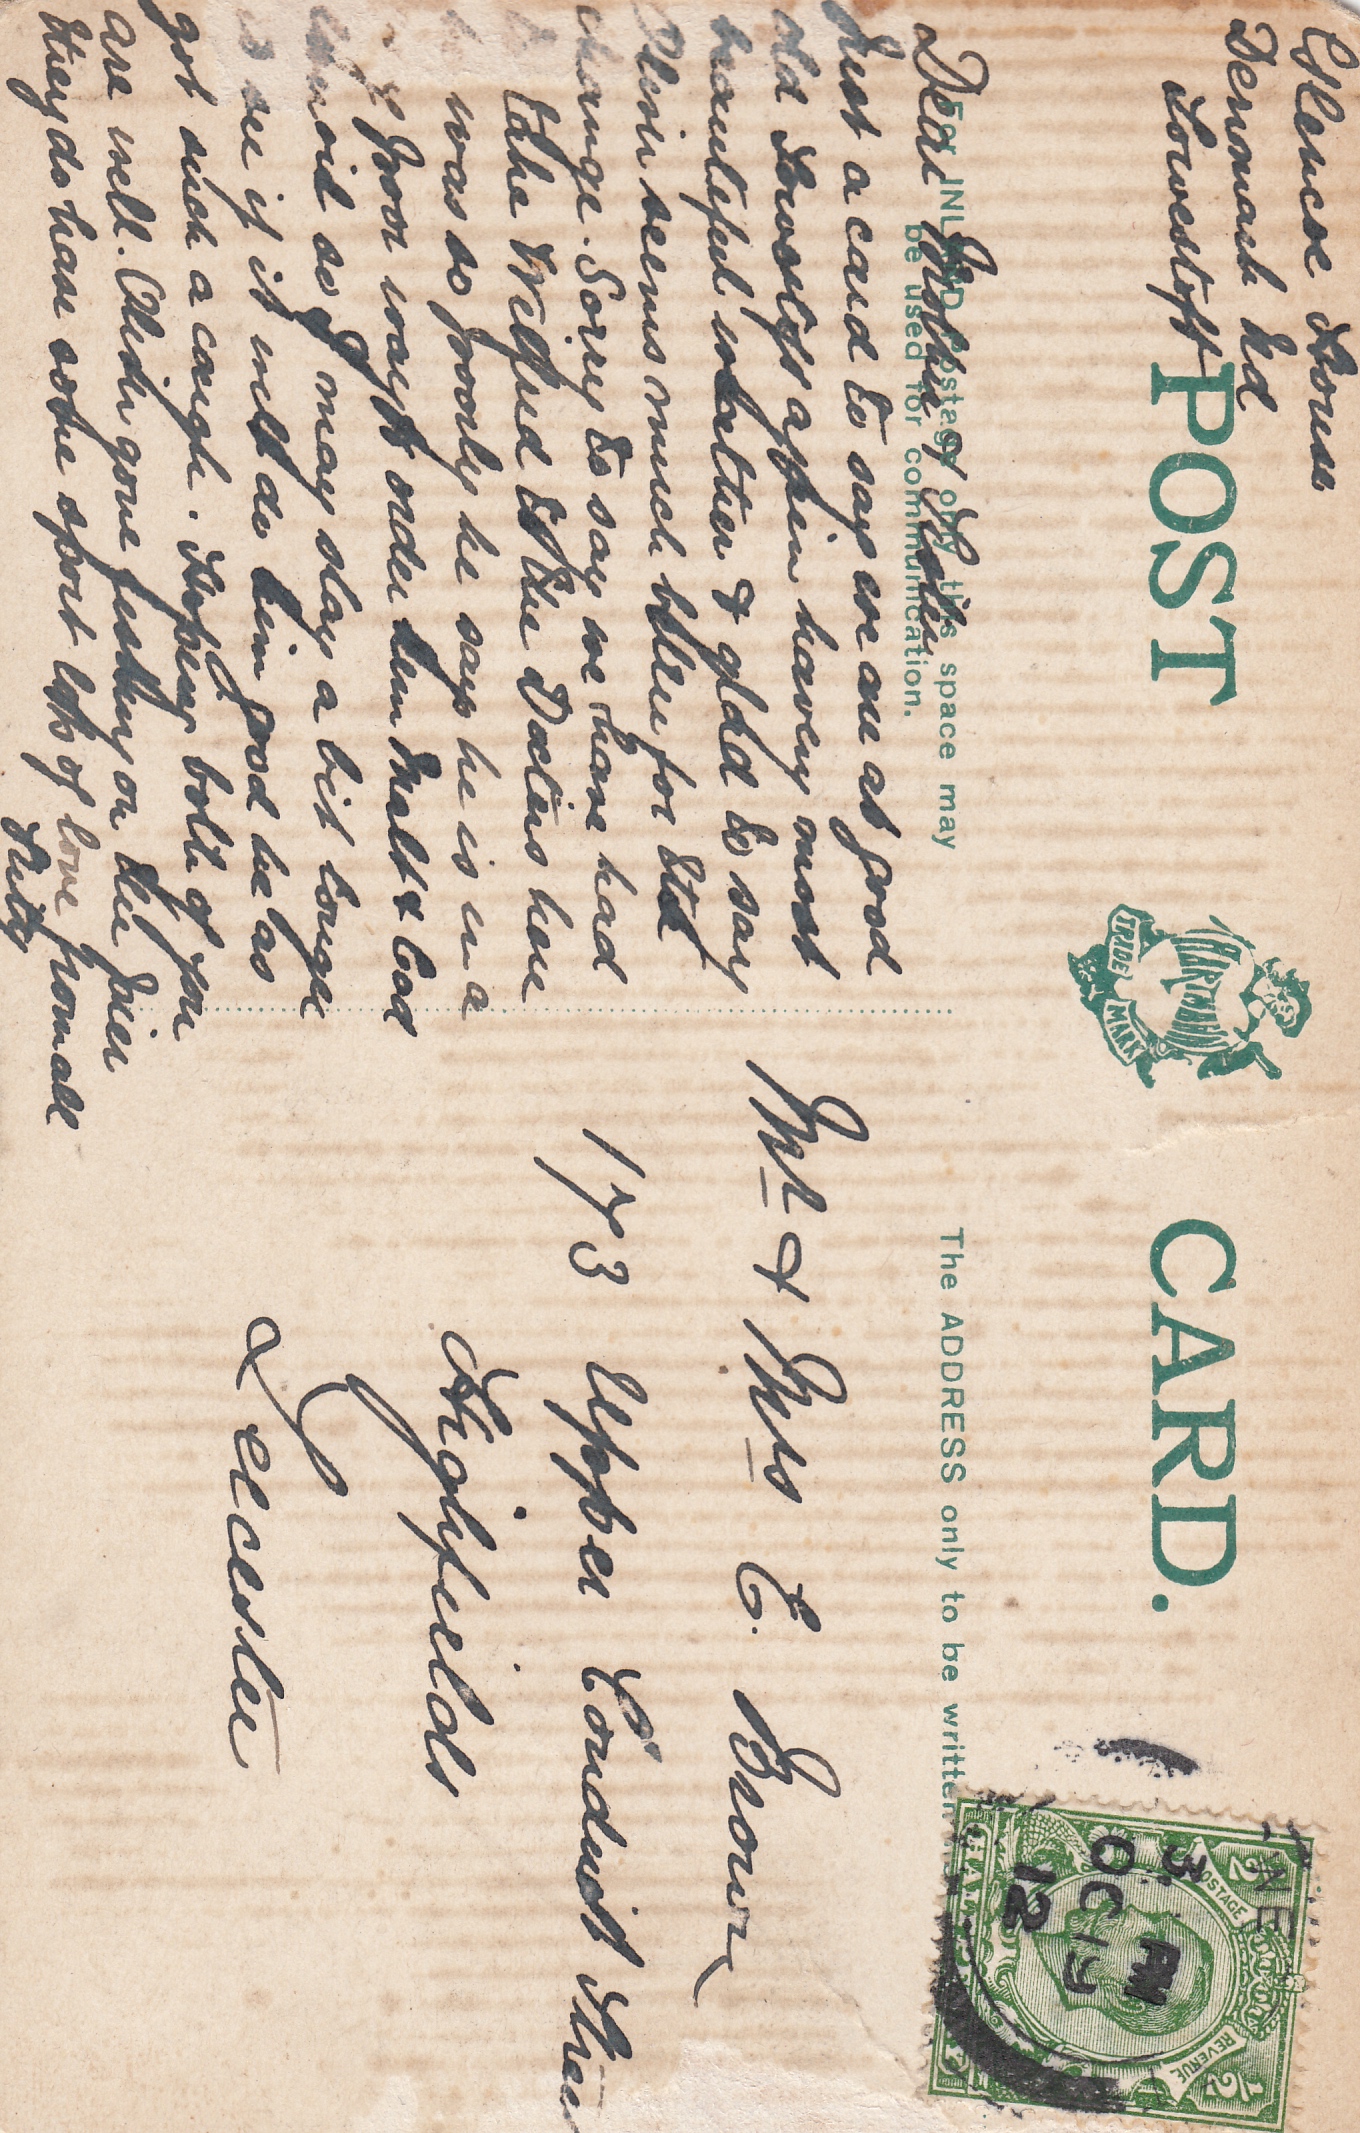 Glencoe House
Denmark Rd
Lowestoft
POST CARD.
HARTMANN
TRADE MARK
For INLAND Postage only this space may
be used for communication.
The ADDRESS only to be written
Dear Mother & Father
Just a card to say we are at good
old Lowestoft again having most
beautiful weather & glad to say
seems much better for the
change. Sorry to say we have had
take Wilfred to the Doctors here
was so poorly he says he is in a
poor way & order him Malt & Cod
oil so I may stay a bit longer
see if it will do him good he as
got such a cough. Hoping both of you
are well. gone fishing on the Pier
they do have some sport lots of love from all
Mr & Mrs C. Brown
173 Upper Conduit Street
Highfields
Leicester
POSTAGE
REVENUE
1/2
1/2
HALF
3 PM
OC 19
12